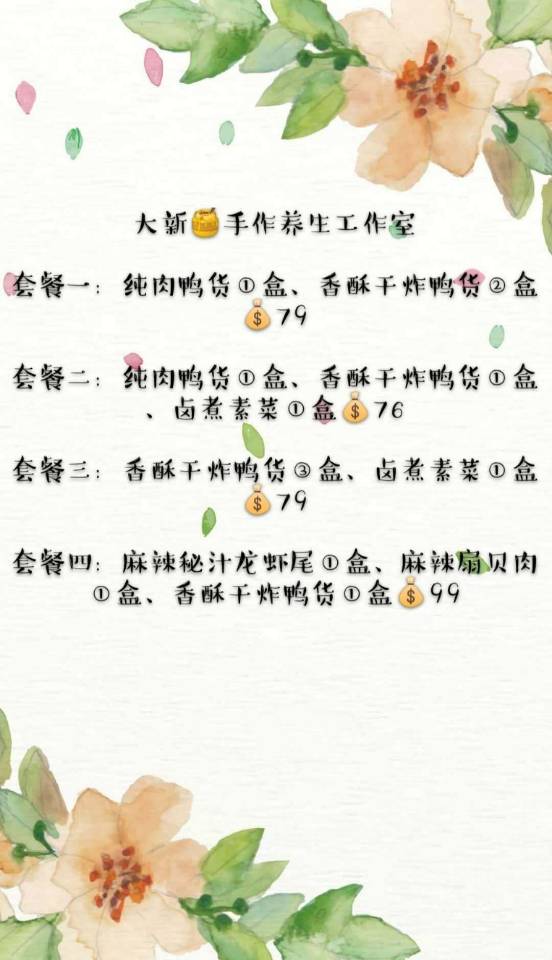 大新🍯手作养生工作室
套餐一：纯肉鸭货①盒、香酥干炸鸭货②盒
💰79
套餐二：纯肉鸭货①盒、香酥干炸鸭货①盒
、卤煮素菜①盒💰76
套餐三：香酥干炸鸭货③盒、卤煮素菜①盒
💰79
套餐四：麻辣秘汁龙虾尾①盒、麻辣扇贝肉
①盒、香酥干炸鸭货①盒💰99